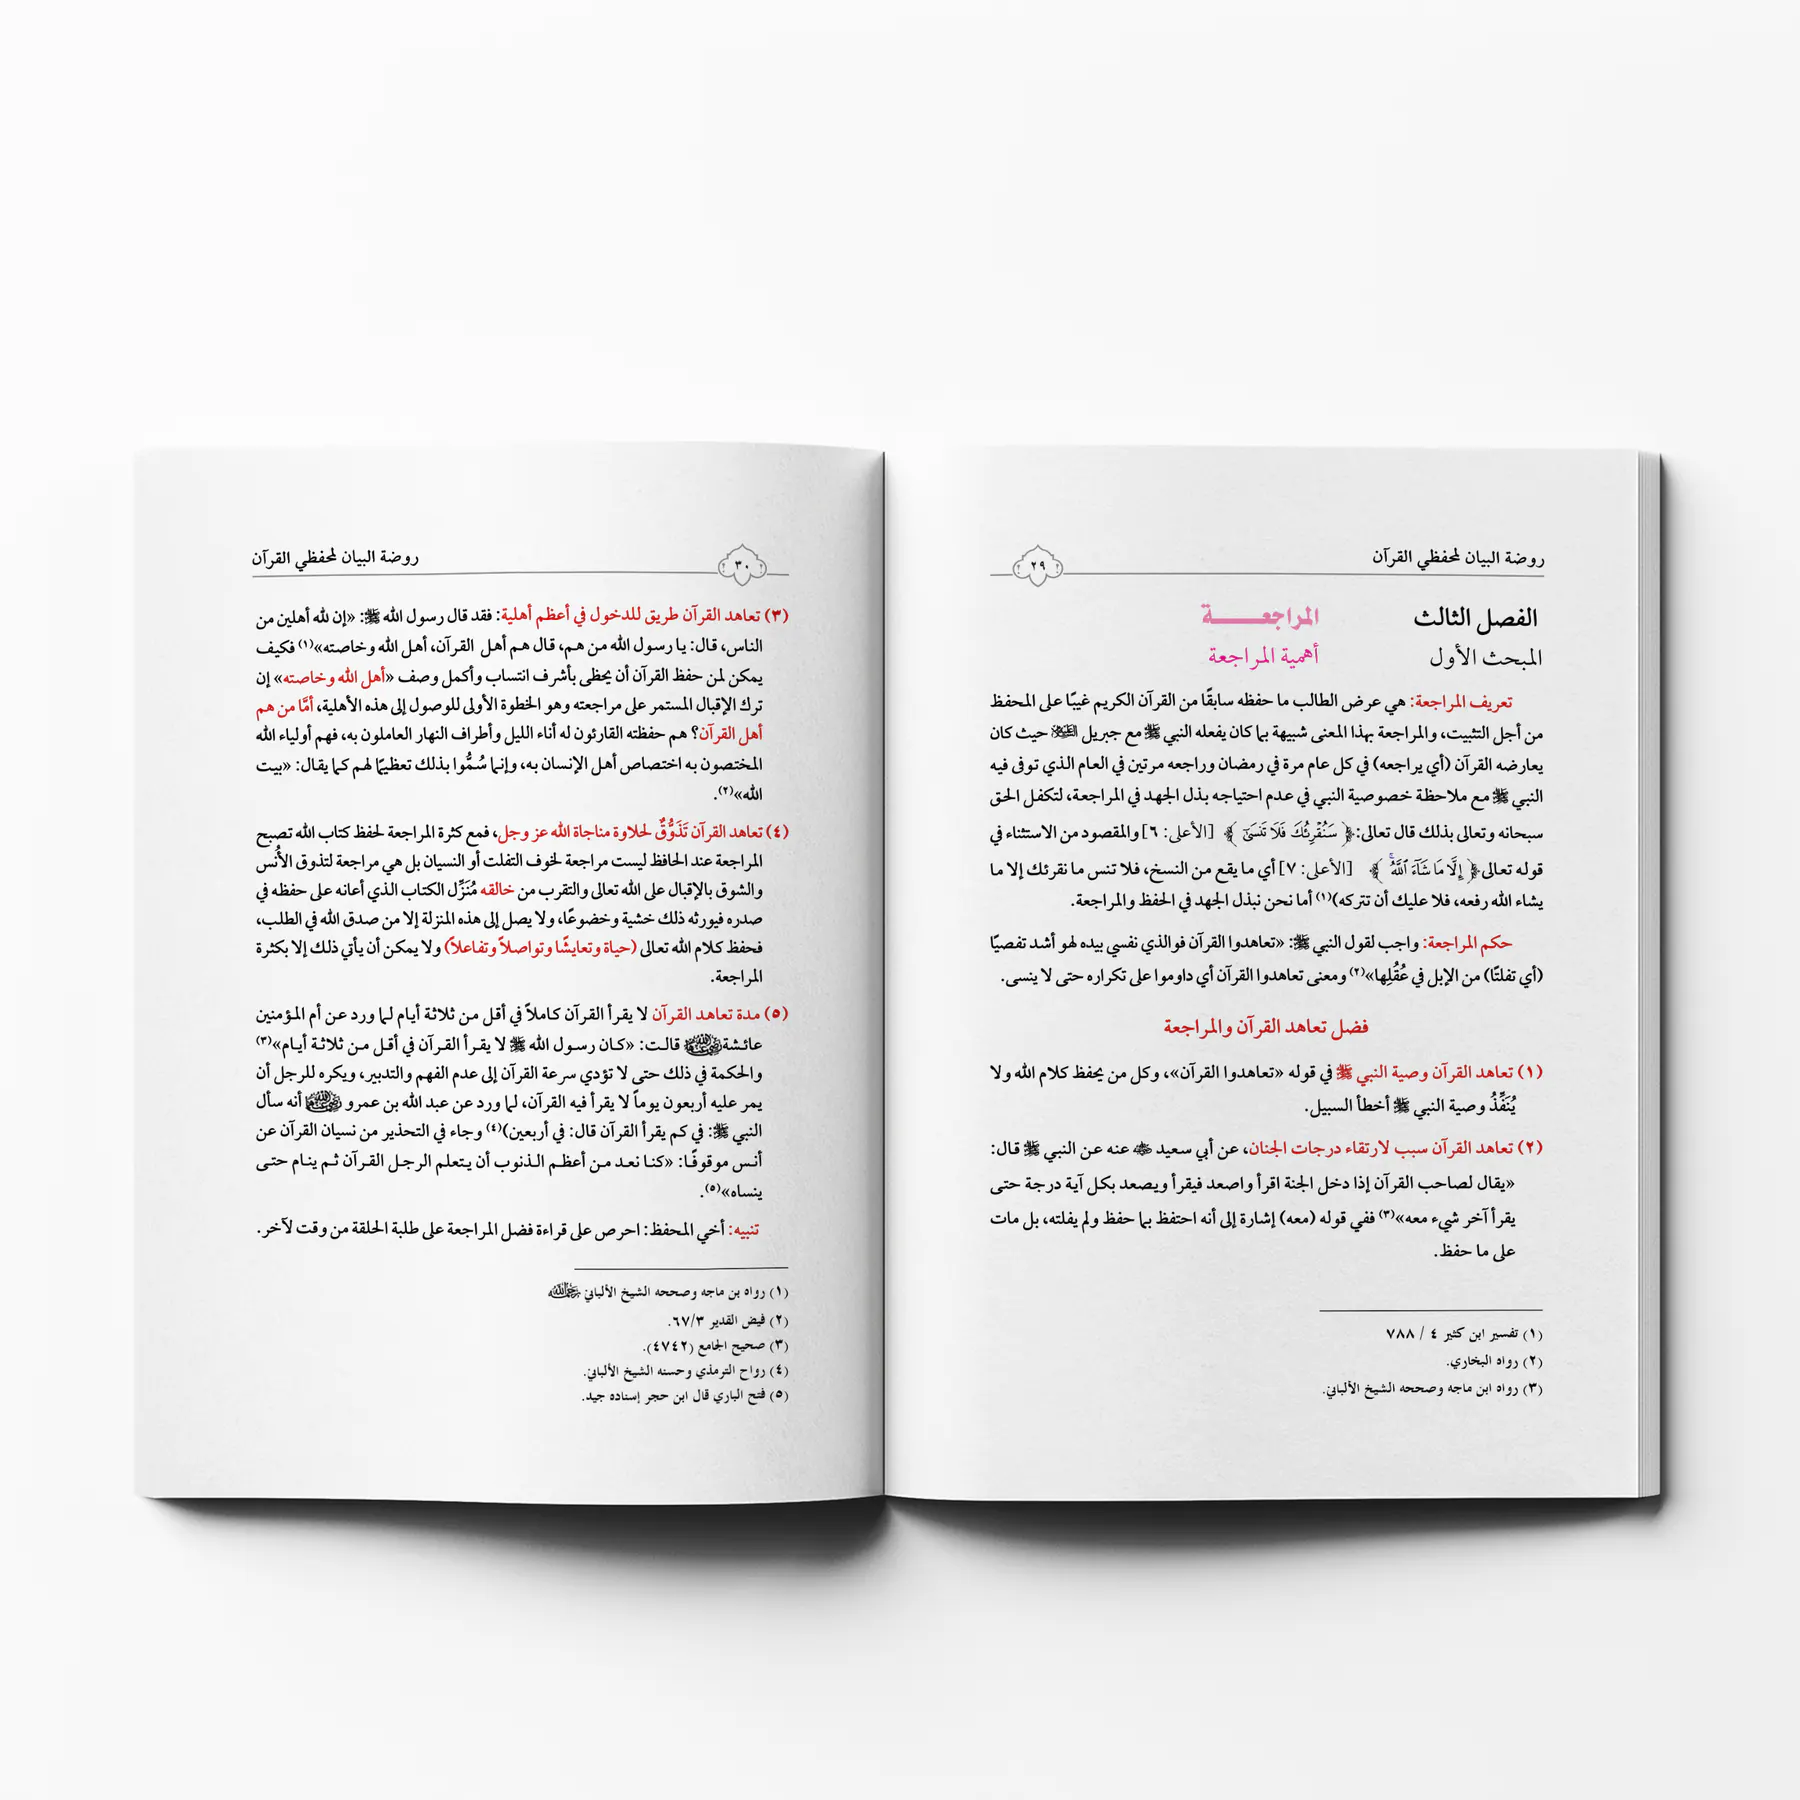 روضة البيان لمحفظي القرآن
٢٩
الفصل الثالث
المراجعـــــــة
المبحث الأول
أهمية المراجعة
تعريف المراجعة: هي عرض الطالب ما حفظه سابقًا من القرآن الكريم غيبًا على المحفظ
من أجل التثبيت، والمراجعة بهذا المعنى شبيهة بما كان يفعله النبي ﷺ مع جبريل حيث كان
يعارضه القرآن (أي يراجعه) في كل عام مرة في رمضان وراجعه مرتين في العام الذي توفى فيه
النبي ﷺ مع ملاحظة خصوصية النبي في عدم احتياجه بذل الجهد في المراجعة، لتكفل الحق
سبحانه وتعالى بذلك قال تعالى:﴿ سَنُقْرِئُكَ فَلَا تَنسَىٰٓ ﴾ [الأعلى: ٦] والمقصود من الاستثناء في
قوله تعالى﴿ إِلَّا مَا شَآءَ ٱللَّهُ ۚ ﴾ [الأعلى: ٧] أي ما يقع من النسخ، فلا تنس ما نقرئك إلا ما
يشاء الله رفعه، فلا عليك أن تتركه)(١) أما نحن نبذل الجهد في الحفظ والمراجعة.
حكم المراجعة: واجب لقول النبي ﷺ: «تعاهدوا القرآن فوالذي نفسي بيده لهو أشد تفصيًا
(أي تفلتًا) من الإبل في عُقُلِها»(٢) ومعنى تعاهدوا القرآن أي داوموا على تكراره حتى لا ينسى.
فضل تعاهد القرآن والمراجعة
(١) تعاهد القرآن وصية النبي ﷺ في قوله «تعاهدوا القرآن»، وكل من يحفظ كلام الله ولا
يُنَفِّذُ وصية النبي ﷺ أخطأ السبيل.
(٢) تعاهد القرآن سبب لارتقاء درجات الجنان، عن أبي سعيد عنه عن النبي ﷺ قال:
«يقال لصاحب القرآن إذا دخل الجنة اقرأ واصعد فيقرأ ويصعد بكل آية درجة حتى
يقرأ آخر شيء معه»(٣) ففي قوله (معه) إشارة إلى أنه احتفظ بما حفظ ولم يفلته، بل مات
على ما حفظ.
(١) تفسير ابن كثير ٤ / ٧٨٨
(٢) رواه البخاري.
(٣) رواه ابن ماجه وصححه الشيخ الألباني.
٣٠
روضة البيان لمحفظي القرآن
(٣) تعاهد القرآن طريق للدخول في أعظم أهلية: فقد قال رسول الله ﷺ: «إن لله أهلين من
الناس، قال: يا رسول الله من هم، قال هم أهل القرآن، أهل الله وخاصته»(١) فكيف
يمكن لمن حفظ القرآن أن يحظى بأشرف انتساب وأكمل وصف «أهل الله وخاصته» إن
ترك الإقبال المستمر على مراجعته وهو الخطوة الأولى للوصول إلى هذه الأهلية، أمَّا من هم
أهل القرآن؟ هم حفظته القارئون له أناء الليل وأطراف النهار العاملون به، فهم أولياء الله
المختصون به اختصاص أهل الإنسان به، وإنما سُمُّوا بذلك تعظيمًا لهم كما يقال: «بيت
الله»(٢).
(٤) تعاهد القرآن تَذَوُّقٌ لحلاوة مناجاة الله عز وجل، فمع كثرة المراجعة لحفظ كتاب الله تصبح
المراجعة عند الحافظ ليست مراجعة لخوف التفلت أو النسيان بل هي مراجعة لتذوق الأُنس
والشوق بالإقبال على الله تعالى والتقرب من خالقه مُنَزِّل الكتاب الذي أعانه على حفظه في
صدره فيورثه ذلك خشية وخضوعًا، ولا يصل إلى هذه المنزلة إلا من صدق الله في الطلب،
فحفظ كلام الله تعالى (حياة وتعايشًا وتواصلاً وتفاعلاً) ولا يمكن أن يأتي ذلك إلا بكثرة
المراجعة.
(٥) مدة تعاهد القرآن لا يقرأ القرآن كاملاً في أقل من ثلاثة أيام لما ورد عن أم المؤمنين
عائشة قالت: «كان رسول الله ﷺ لا يقرأ القرآن في أقل من ثلاثة أيام»(٣)
والحكمة في ذلك حتى لا تؤدي سرعة القرآن إلى عدم الفهم والتدبير، ويكره للرجل أن
يمر عليه أربعون يوماً لا يقرأ فيه القرآن، لما ورد عن عبد الله بن عمرو أنه سأل
النبي ﷺ: في كم يقرأ القرآن قال: في أربعين)(٤) وجاء في التحذير من نسيان القرآن عن
أنس موقوفًا: «كنا نعد من أعظم الذنوب أن يتعلم الرجل القرآن ثم ينام حتى
ينساه»(٥).
تنبيه: أخي المحفظ: احرص على قراءة فضل المراجعة على طلبة الحلقة من وقت لآخر.
(١) رواه بن ماجه وصححه الشيخ الألباني
(٢) فيض القدير ٦٧/٣.
(٣) صحيح الجامع (٤٧٤٢).
(٤) رواح الترمذي وحسنه الشيخ الألباني.
(٥) فتح الباري قال ابن حجر إسناده جيد.